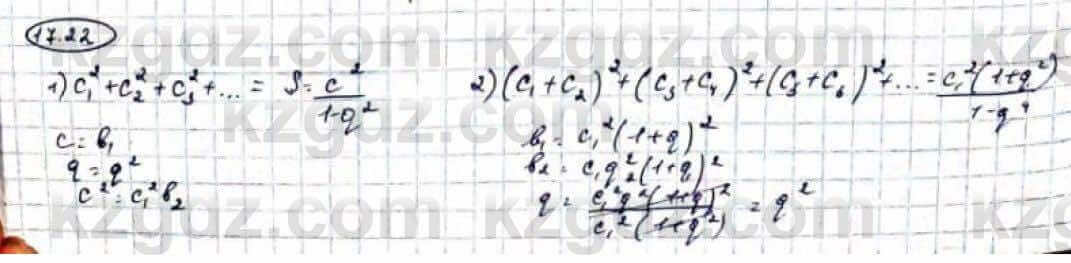 17.22
1) c₁² + c₂² + c₃² + ... = S = c² / (1-q²)
c = b₁
q = q²
c² = c₁² b₂
2) (c₁ + c₂)² + (c₃ + c₄)² + (c₅ + c₆)² + ... = c₁² (1+q²) / (1-q⁴)
b₁ = c₁² (1+q)²
b₂ = c₁ q₂² (1+q)²
q = c₁² q² (1+q)² / c₁² (1+q²) = q²
kzgdz.com kzgdz.com
kzgdz.com
kzgdz.com kzgdz.com